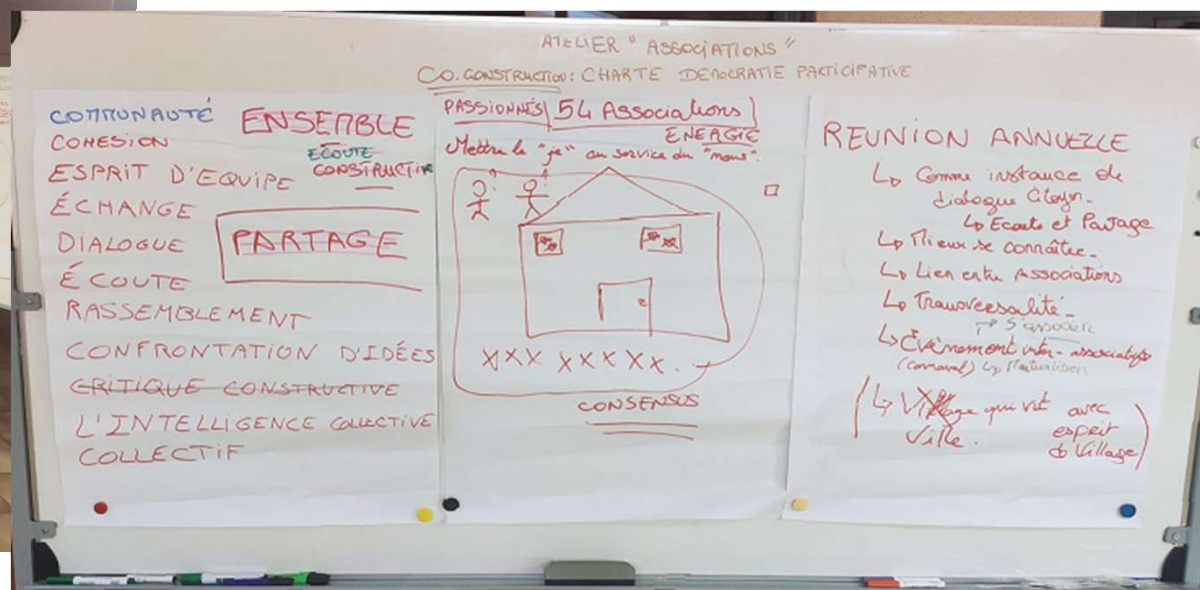 ATELIER "ASSOCIATIONS"
CO.CONSTRUCTION: CHARTE DEMOCRATIE PARTICIPATIVE
COMMUNAUTÉ
ENSEMBLE
COHESION
ECOUTE
CONSTRUCTIVE
ESPRIT D'EQUIPE
ÉCHANGE
DIALOGUE
PARTAGE
ÉCOUTE
RASSEMBLEMENT
CONFRONTATION D'IDÉES
CRITIQUE CONSTRUCTIVE
L'INTELLIGENCE COLLECTIVE
COLLECTIF
PASSIONNÉS 54 Associations
ENERGIE
Mettre le "je" au service du "nous".
? !
XXX XXXXX.
CONSENSUS
REUNION ANNUELLE
↳ Comme instance de
dialogue Citoyen.
↳ Ecoute et Partage
↳ Mieux se connaître.
↳ Lien entre Associations
↳ Transversalité.
→ S'associer
↳ Évènement inter-associatifs
(carnaval) ↳ Mutualiser
(↳ qui vit avec
Ville. esprit
de Village)